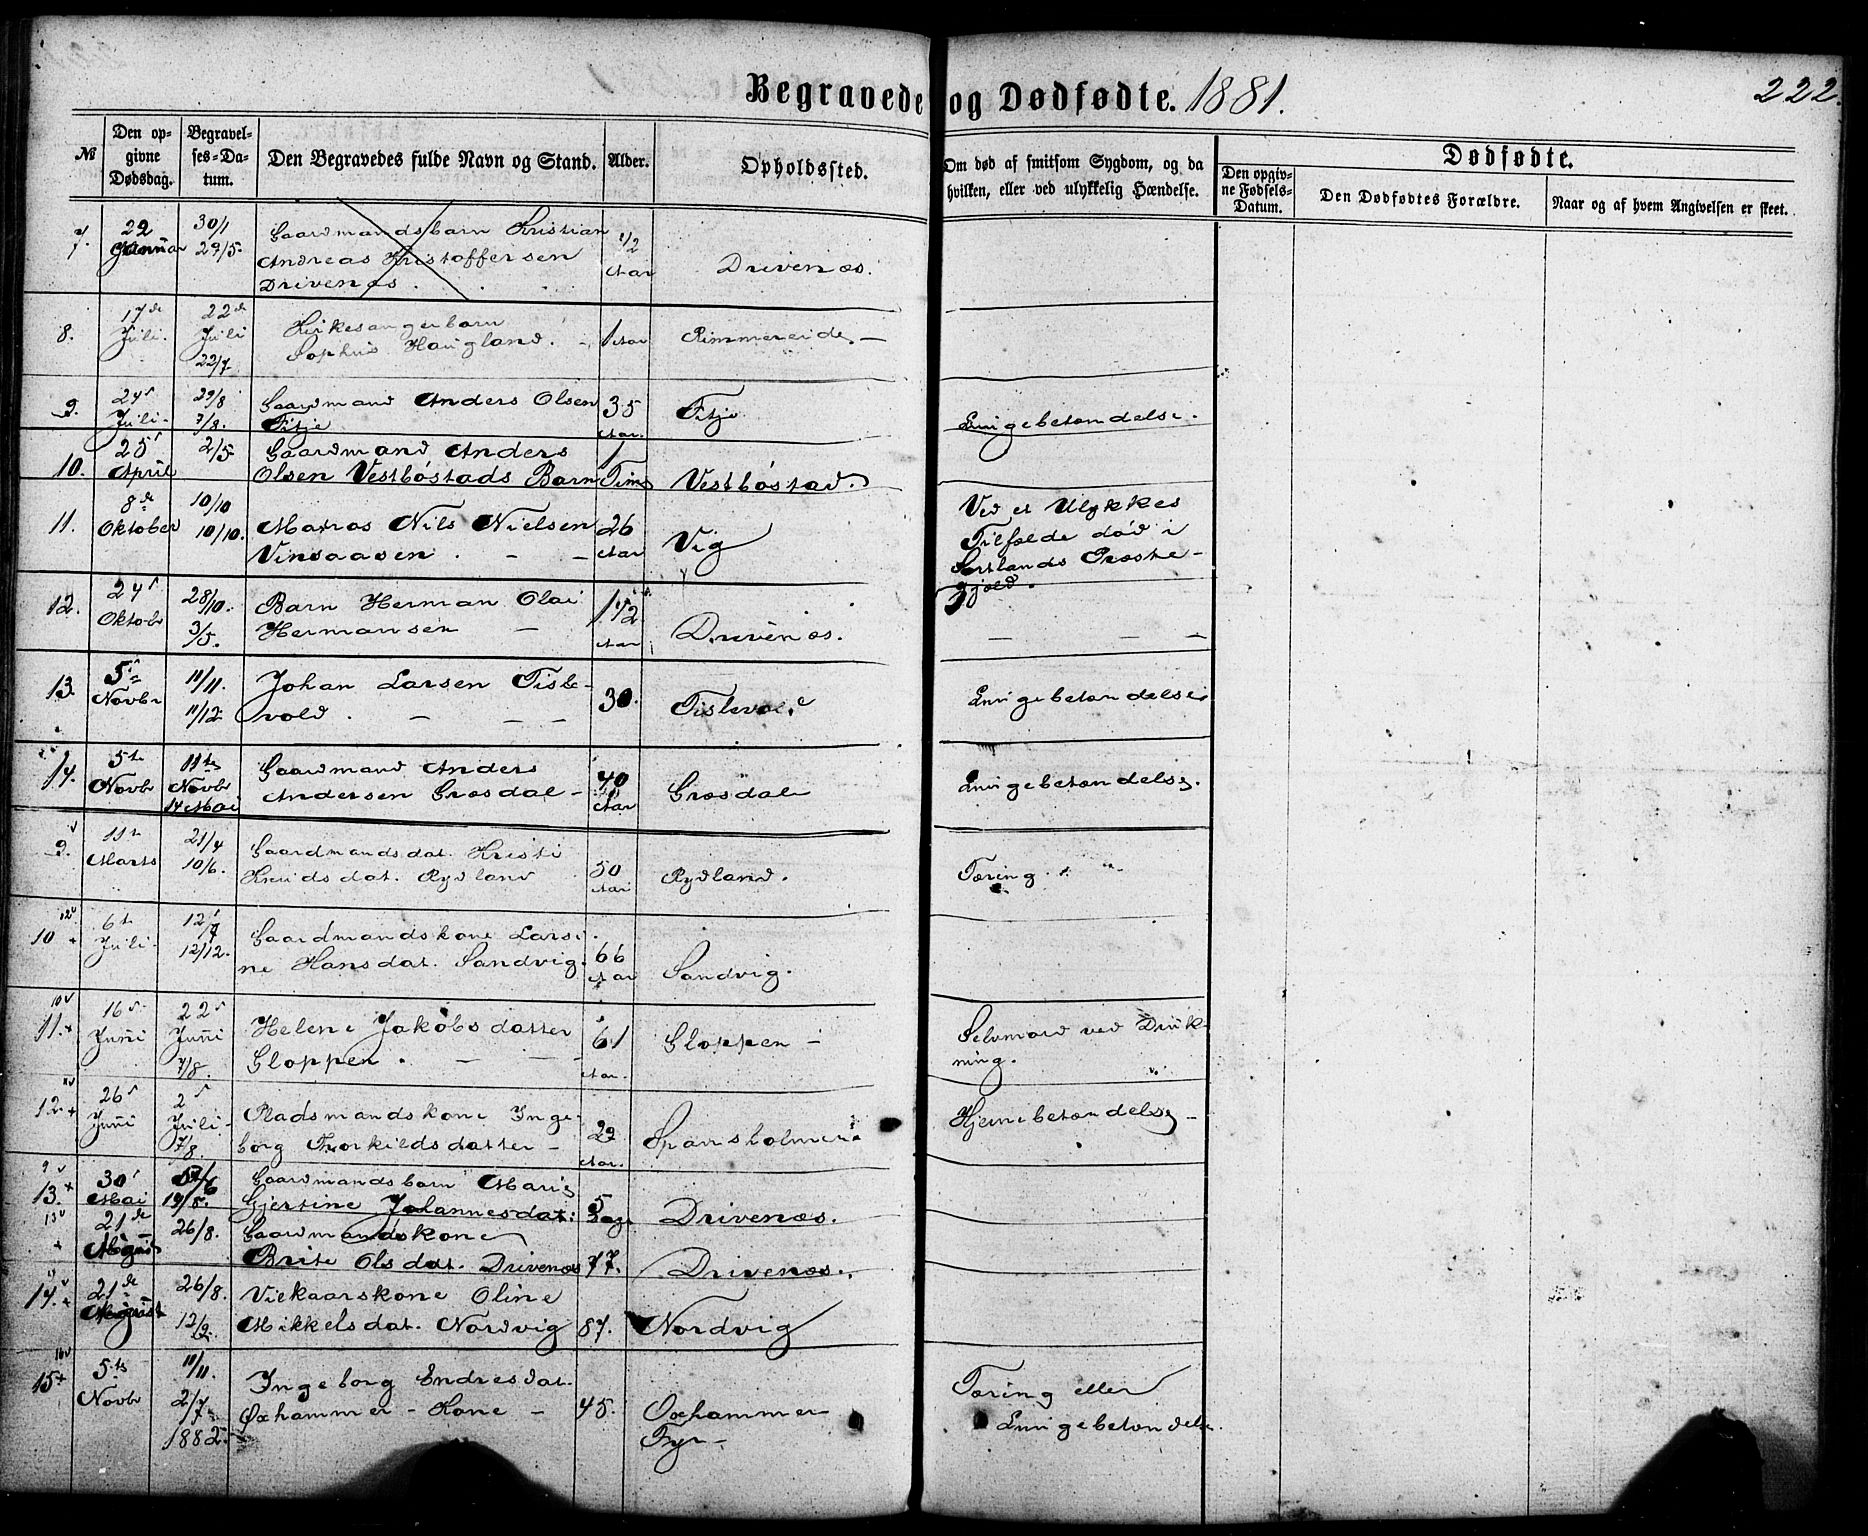 Begravede og Dødfødte. 1881. 222.
№ Den opgivne Dødsdag. Begravelses-Datum. Den Begravedes fulde Navn og Stand. Alder. Opholdssted. Om død af smitsom Sygdom, og da hvilken, eller ved ulykkelig Hændelse. Dødfødte.
Den opgivne Fødsels-Datum. Den Dødfødtes Forældre. Naar og af hvem Angivelsen er skeet.
7. 22 Januar 30/1 29/5. Gaardmandsbarn Kristian
Andreas Kristoffersen
Drivenæs. 1/2 Aar Drivenæs.
8. 17de Juli. 22de Juli 22/7. Kirkesangerbarn
Sophus Haugland. 1 Aar Rimmereide
9. 24 Juli. 29/8 7/8. Gaardmand Anders Olsen
Fitje 35 Aar. Fitje Lungebetændelse.
10. 25 April 2/5. Gaardmand Anders
Olsen Vestbøstads Barn 1 Time Vestbøstad.
11. 8de Oktober 10/10 10/10. Matros Nils Nielsen
Vinsaasen. 26 Aar Vig Ved et Ulykkes
Tilfælde død i
Sortlands Præste-
gjeld.
12. 24 Oktobr 28/10. 3/5. Barn Herman Olai
Hermansen 1 1/2 Aar Drivenæs.
13. 5 Novbr 11/11. 11/12. Johan Larsen Tisle-
vold. 30. Tislevold Lungebetændelse
14. 5te Novbr 11te Novbr 14 Mai Gaardmand Anders
Andersen Græsdal 40 Aar Græsdal Lungebetændelse.
9. 11te Marts 21/4 10/6. Gaardmandsdat. Kristi
Knudsdat. Rydland 50 Aar Rydland. Tæring.
10 12 6te Juli 12/7 12/12. Gaardmandskone Larsi-
ne Hansdat. Sandvig. 66 Aar Sandvig.
11. 10 16 Juni 22 Juni 7/8. Helene Jakobsdatter
Gloppen. 61 Aar. Gloppen Selvmord ved Druk-
ning.
12 11 26 Juni 2 Juli 7/8. Pladsmandskone Inge-
borg Torkildsdatter 29 Aar. Hjernebetændelse
13. 9 30 Mai 19/8. Gaardmandsbarn Marie
Gjertine Johannesdat: 5 Dage Drivenæs.
13 21de August 26/8. Gaardmandskone
Brite Olsdat. Drivenæs 77. Drivenæs.
14. 21de August 26/8. 12/2. Vilkaarskone Oline
Mikkelsdat. Nordvig 87. Nordvig
15 16 5te Novbr 11/11. 2/7 1882. Ingeborg Endresdat.
Øxhammer - Kone 45. Oxhammer
Fyr Tæring eller
Lungebetændelse.